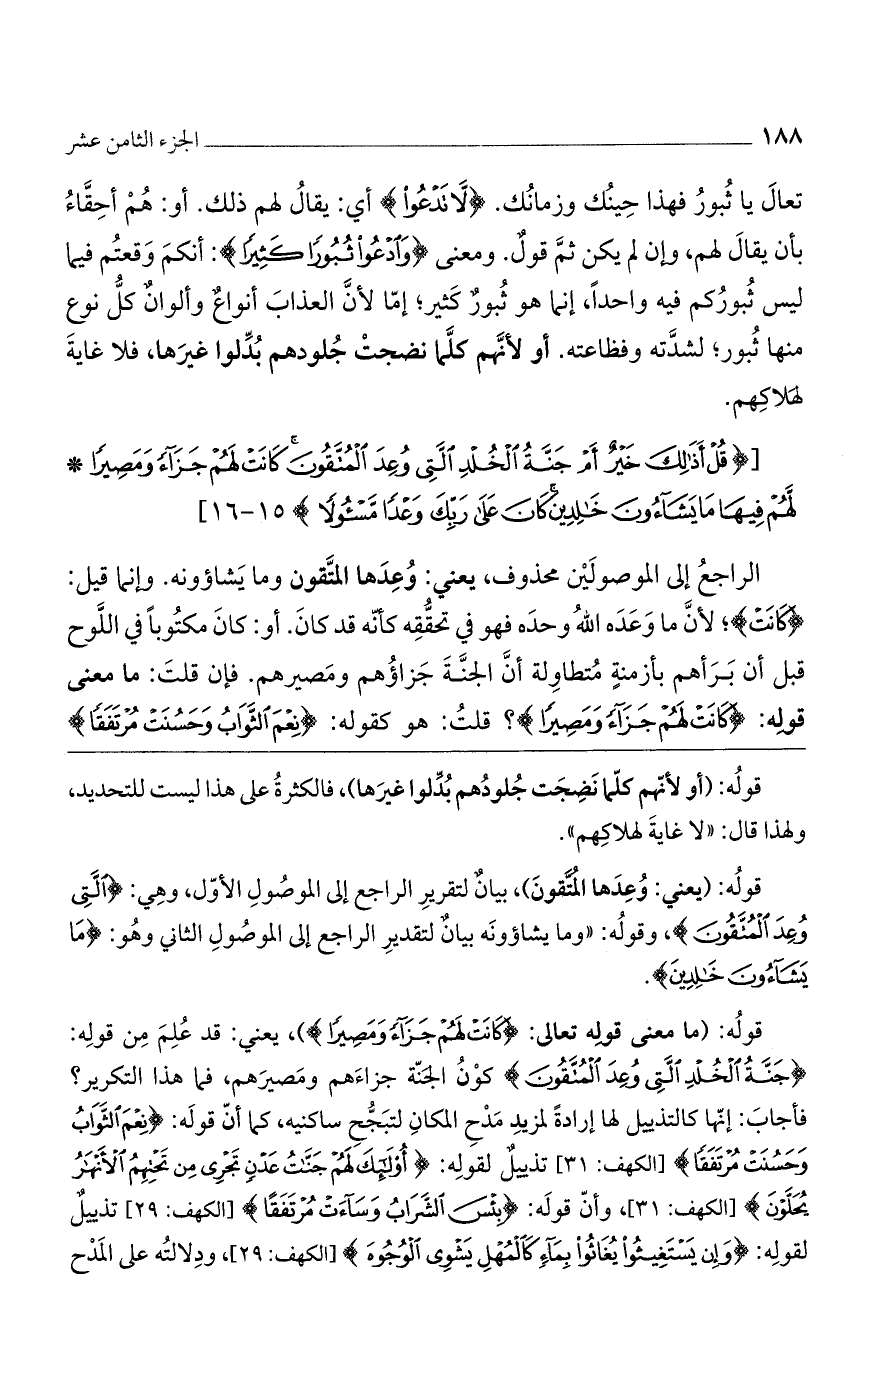 ١٨٨ الجزء الثامن عشر
تعالَ يا ثُبورُ فهذا حِينُك وزمانُك. ﴿لَّا تَدْعُوا۟﴾ أي: يقالُ لهم ذلك. أو: هُمْ أحِقَّاءُ
بأن يقالَ لهم، وإن لم يكن ثمَّ قولٌ. ومعنى ﴿وَٱدْعُوا۟ ثُبُورًا كَثِيرًا﴾: أنكمَ وَقعتُم فيما
ليس ثُبورُكم فيه واحداً، إنما هو ثُبورٌ كَثير؛ إمّا لأنَّ العذابَ أنواعٌ وألوانٌ كلُّ نوع
منها ثُبور؛ لشدَّته وفظاعته. أو لأنَّهم كلَّما نضجتْ جُلودهم بُدِّلوا غيرَها، فلا غايةَ
لهَلاكِهم.
[﴿قُلْ أَذَٰلِكَ خَيْرٌ أَمْ جَنَّةُ ٱلْخُلْدِ ٱلَّتِى وُعِدَ ٱلْمُتَّقُونَ ۚ كَانَتْ لَهُمْ جَزَآءً وَمَصِيرًا *
لَّهُمْ فِيهَا مَا يَشَآءُونَ خَٰلِدِينَ ۚ كَانَ عَلَىٰ رَبِّكَ وَعْدًا مَّسْـُٔولًا﴾ ١٥-١٦]
الراجعُ إلى الموصولَيْن محذوف، يعني: وُعِدَها المتَّقون وما يَشاؤونه. وإنما قيل:
﴿كَانَتْ﴾؛ لأنَّ ما وَعَدَه اللهُ وحدَه فهو في تحقُّقِه كأنّه قد كانَ. أو: كانَ مكتُوباً في اللَّوح
قبل أن بَرَأهم بأزمنةٍ مُتطاوِلة أنَّ الجنَّةَ جَزاؤُهم ومَصيرهم. فإن قلتَ: ما معنى
قولِه: ﴿كَانَتْ لَهُمْ جَزَآءً وَمَصِيرًا﴾؟ قلتُ: هو كقوله: ﴿نِعْمَ ٱلثَّوَابُ وَحَسُنَتْ مُرْتَفَقًا﴾
قولُه: (أو لأنّهم كلّما نَضِجَت جُلودُهم بُدِّلوا غيرَها)، فالكثرةُ على هذا ليست للتحديد،
ولهذا قال: «لا غايةَ لهلاكِهم».
قولُه: (يعني: وُعِدَها المُتَّقونَ)، بيانٌ لتقريرِ الراجع إلى الموصُولِ الأوّل، وهِي: ﴿ٱلَّتِى
وُعِدَ ٱلْمُتَّقُونَ﴾، وقولُه: «وما يشاؤونَه بيانٌ لتقديرِ الراجع إلى الموصُولِ الثاني وهُو: ﴿مَا
يَشَآءُونَ خَٰلِدِينَ﴾.
قولُه: (ما معنى قولِه تعالى: ﴿كَانَتْ لَهُمْ جَزَآءً وَمَصِيرًا﴾)، يعني: قد عُلِمَ مِن قولِه:
﴿جَنَّةُ ٱلْخُلْدِ ٱلَّتِى وُعِدَ ٱلْمُتَّقُونَ﴾ كوْنُ الجنّة جزاءَهم ومَصيرَهم، فما هذا التكرير؟
فأجابَ: إنّها كالتذييل لها إرادةً لمزيدِ مَدْحِ المكانِ لتبَجُّح ساكنيه، كما أنّ قولَه: ﴿نِعْمَ ٱلثَّوَابُ
وَحَسُنَتْ مُرْتَفَقًا﴾ [الكهف: ٣١] تذييلٌ لقولِه: ﴿أُو۟لَٰٓئِكَ لَهُمْ جَنَّٰتُ عَدْنٍ تَجْرِى مِن تَحْتِهِمُ ٱلْأَنْهَٰرُ
يُحَلَّوْنَ﴾ [الكهف: ٣١]، وأنّ قولَه: ﴿بِئْسَ ٱلشَّرَابُ وَسَآءَتْ مُرْتَفَقًا﴾ [الكهف: ٢٩] تذييلٌ
لقولِه: ﴿وَإِن يَسْتَغِيثُوا۟ يُغَاثُوا۟ بِمَآءٍ كَٱلْمُهْلِ يَشْوِى ٱلْوُجُوهَ﴾ [الكهف: ٢٩]، ودِلالتُه على المَدْح